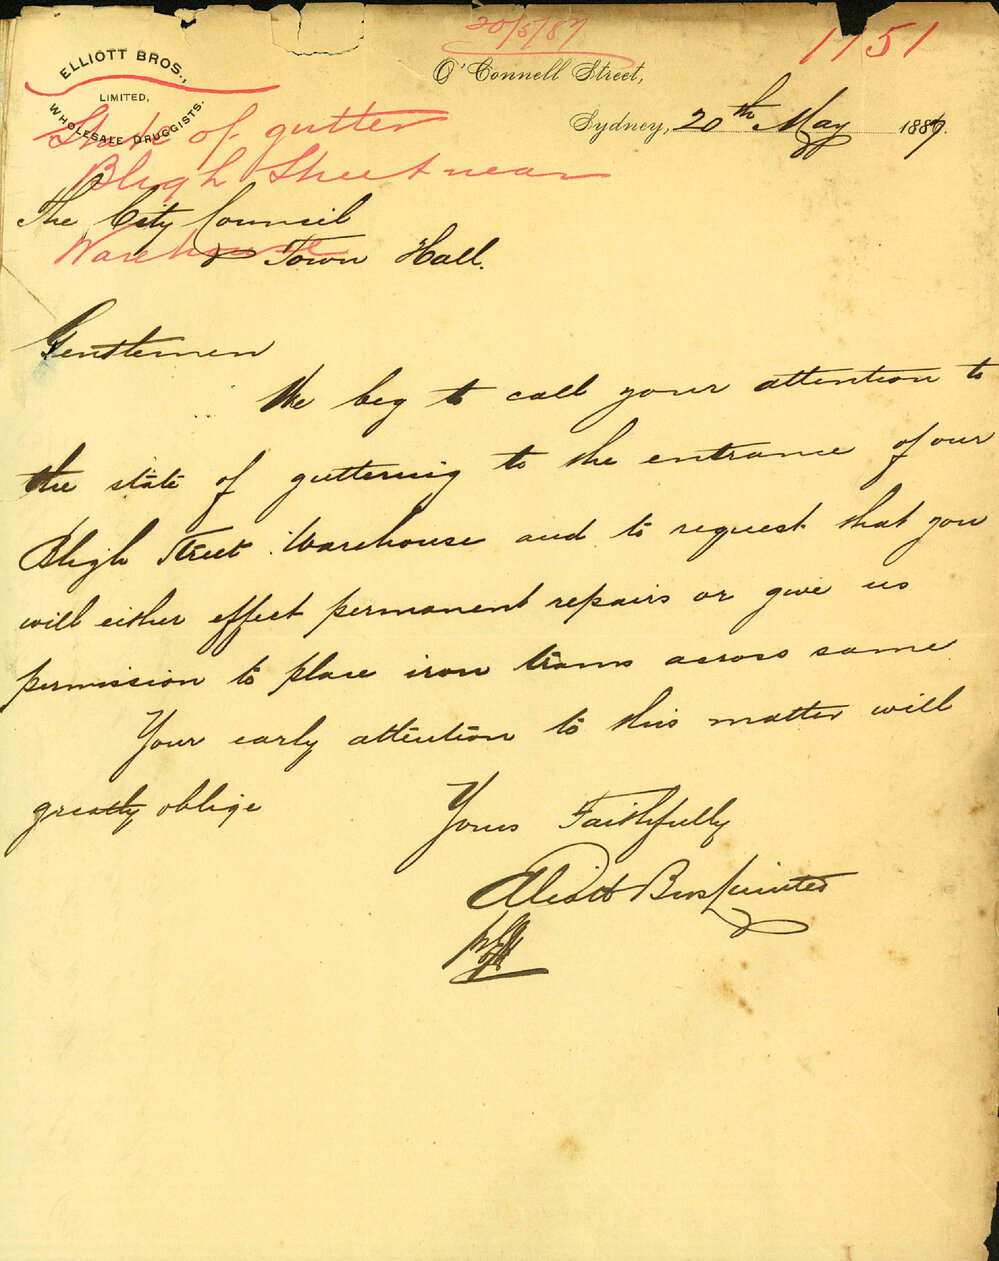 20/5/87
1151
ELLIOTT BROS.,
LIMITED,
WHOLESALE DRUGGISTS.
O'Connell Street,
Sydney, 20th May 1887.
State of gutter
Bligh Street near
Warehouse
The City Council
Town Hall.
Gentlemen
We beg to call your attention to
the state of guttering to the entrance of our
Bligh Street Warehouse and to request that you
will either effect permanent repairs or give us
permission to place iron trams across same
Your early attention to this matter will
greatly oblige
Yours Faithfully
Elliott Bros Limited